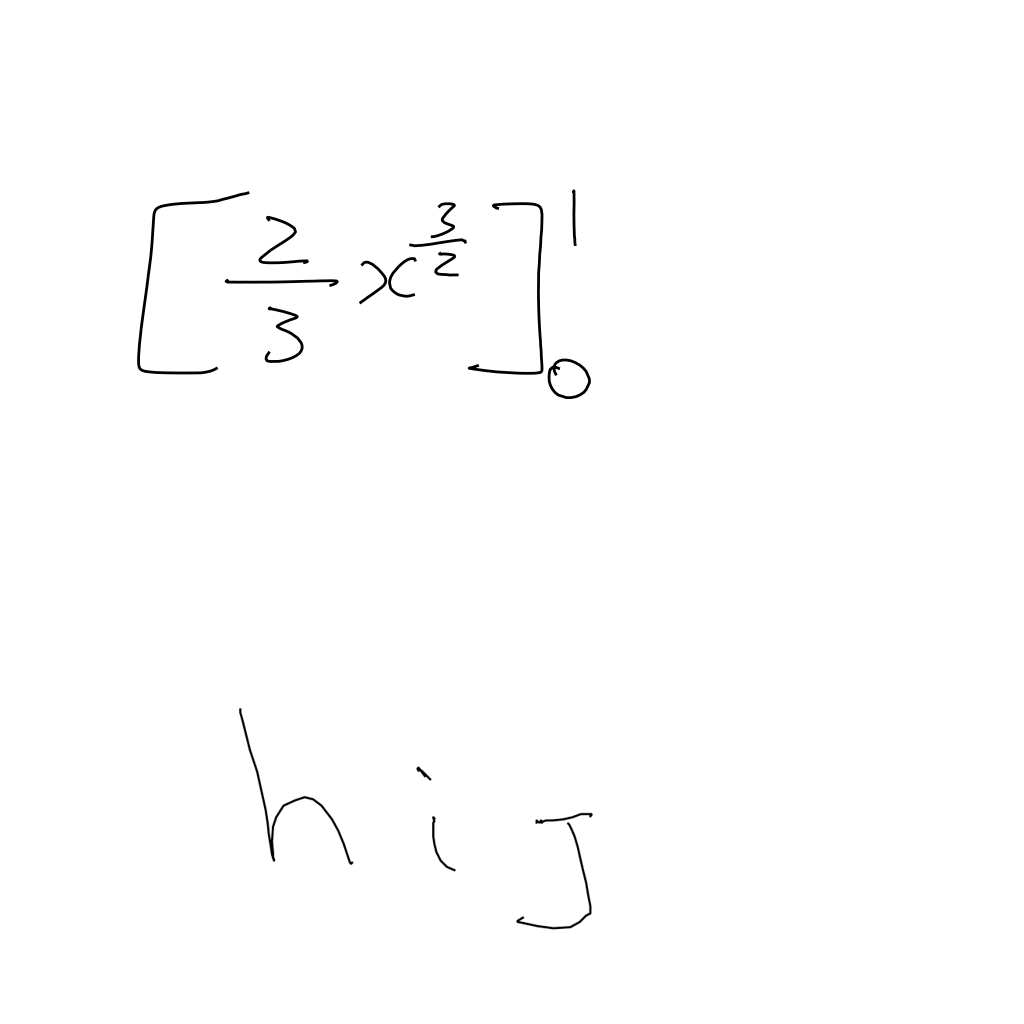 [2/3 x^(3/2)]_0^1
h i J